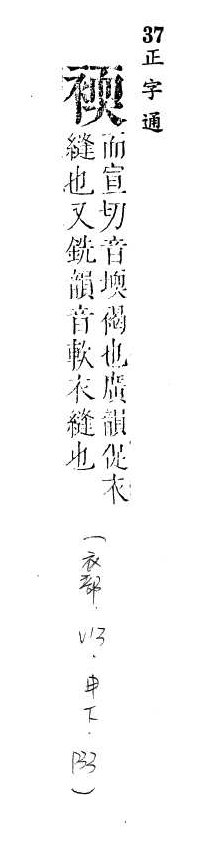 37正字通
䙇
而宣切音堧褐也廣韻促衣
縫也又銑韻音軟衣縫也
(衣部.V13.申下.P33)